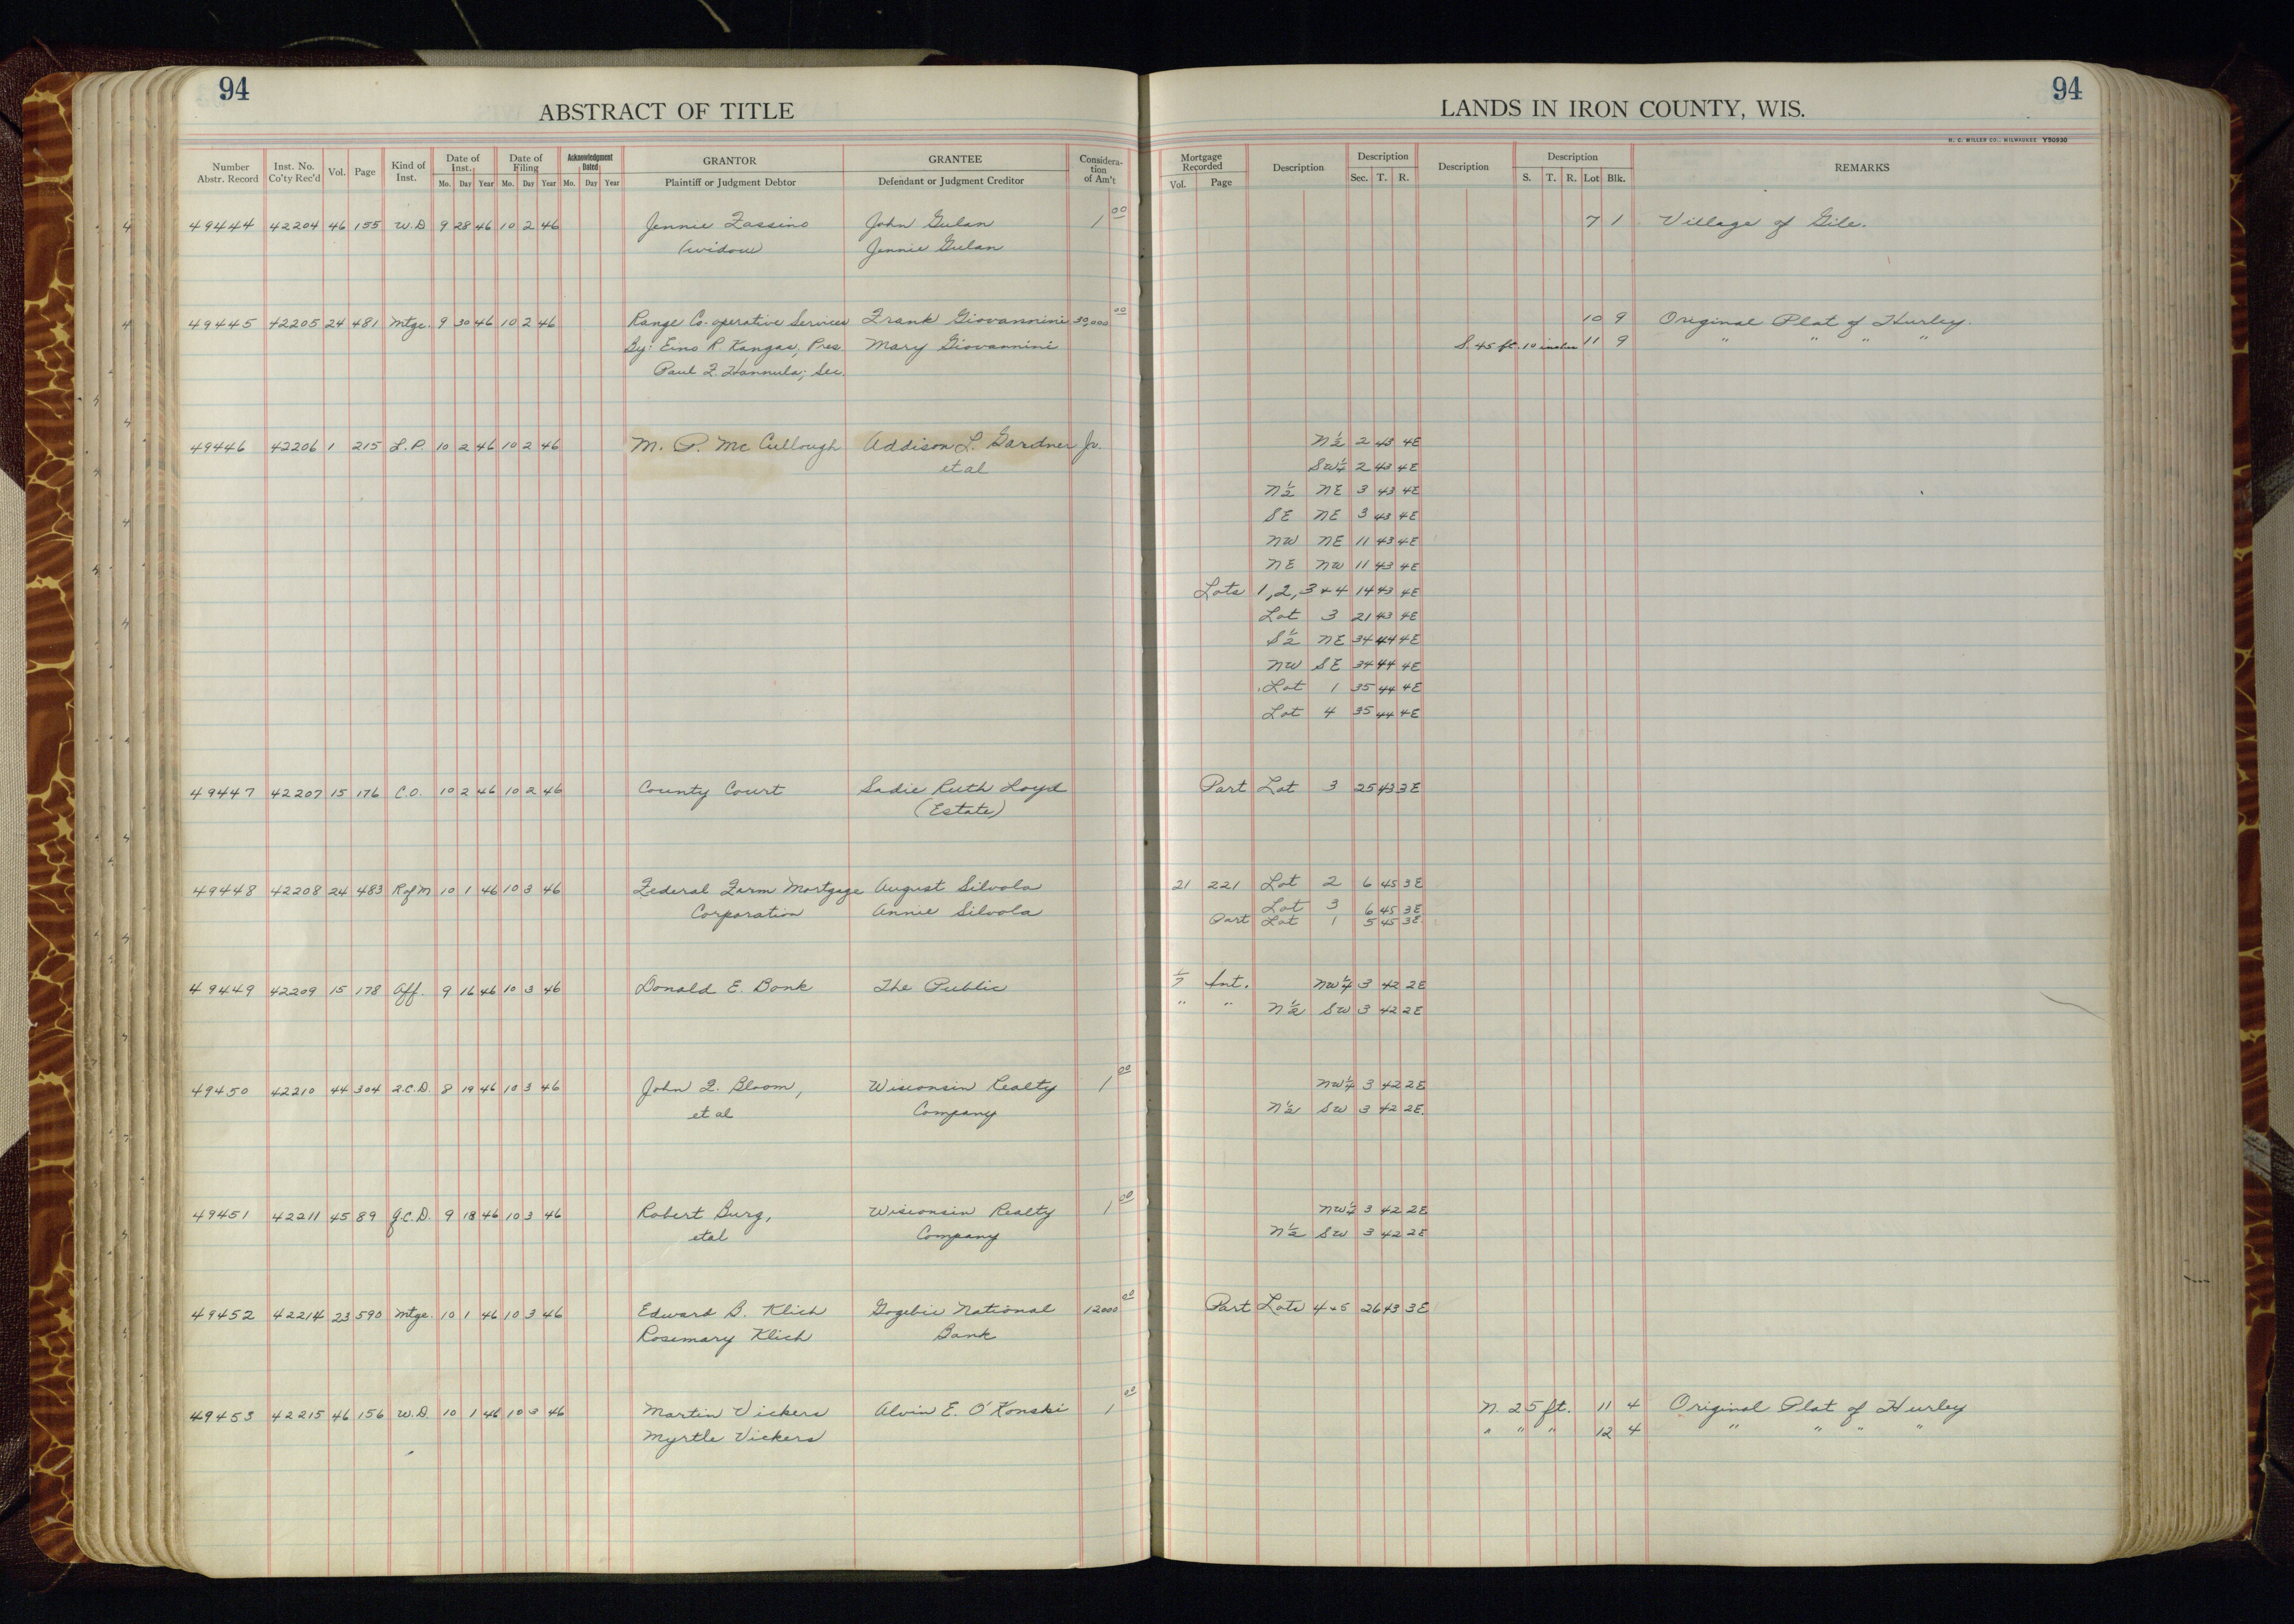 94
ABSTRACT OF TITLE
Number Abstr. Record Inst. No. Co'ty Rec'd Vol. Page Kind of Inst. Date of Inst. Date of Filing Acknowledgment Dated GRANTOR GRANTEE Consideration of Am't
Mo. Day Year Mo. Day Year Mo. Day Year Plaintiff or Judgment Debtor Defendant or Judgment Creditor
49444 42204 46 155 W.D 9 28 46 10 2 46 Jennie Fassino John Gulan 1 00
(widow) Jennie Gulan
49445 42205 24 481 Mtge. 9 30 46 10 2 46 Range Co-operative Services Frank Giovannini 30,000 00
By: Eino R. Kangas, Pres. Mary Giovannini
Paul F. Hannula; Sec.
49446 42206 1 215 L.P. 10 2 46 10 2 46 M. P. McCullough Addison L. Gardner Jr.
et al
49447 42207 15 176 C.O. 10 2 46 10 2 46 County Court Sadie Ruth Loyd
(Estate)
49448 42208 24 483 R of M 10 1 46 10 3 46 Federal Farm Mortgage August Silvola
Corporation Annie Silvola
49449 42209 15 178 Aff. 9 16 46 10 3 46 Donald E. Bonk The Public
49450 42210 44 304 2.C.D. 8 19 46 10 3 46 John F. Bloom, Wisconsin Realty 1 00
et al Company
49451 42211 45 89 Q.C.D. 9 18 46 10 3 46 Robert Burg, Wisconsin Realty 1 00
et al Company
49452 42214 23 590 Mtge. 10 1 46 10 3 46 Edward B. Klich Gogebic National 12000 00
Rosemary Klich Bank
49453 42215 46 156 W.D. 10 1 46 10 3 46 Martin Vickers Alvin E. O'Konski 1 00
Myrtle Vickers
94
LANDS IN IRON COUNTY, WIS.
H. C. MILLER CO., MILWAUKEE Y50930
Mortgage Recorded Description Description Description Description REMARKS
Vol. Page Sec. T. R. S. T. R. Lot Blk.
7 1 Village of Gile.
10 9 Original Plat of Hurley.
S. 45 ft. 10 inches 11 9 " " " "
N½ 2 43 4E
SW¼ 2 43 4E
N½ NE 3 43 4E
SE NE 3 43 4E
NW NE 11 43 4E
NE NW 11 43 4E
Lots 1, 2, 3 + 4 14 43 4E
Lot 3 21 43 4E
S½ NE 34 44 4E
NW SE 34 44 4E
Lot 1 35 44 4E
Lot 4 35 44 4E
Part Lot 3 25 43 3E
21 221 Lot 2 6 45 3E
Lot 3 6 45 3E
Part Lot 1 5 45 3E
1/7 Int. NW¼ 3 42 2E
" " N½ SW 3 42 2E
NW¼ 3 42 2E
N½ SW 3 42 2E.
NW¼ 3 42 2E
N½ SW 3 42 2E
Part Lots 4 + 5 26 43 3E
N. 25 ft. 11 4 Original Plat of Hurley
" " " 12 4 " " " "